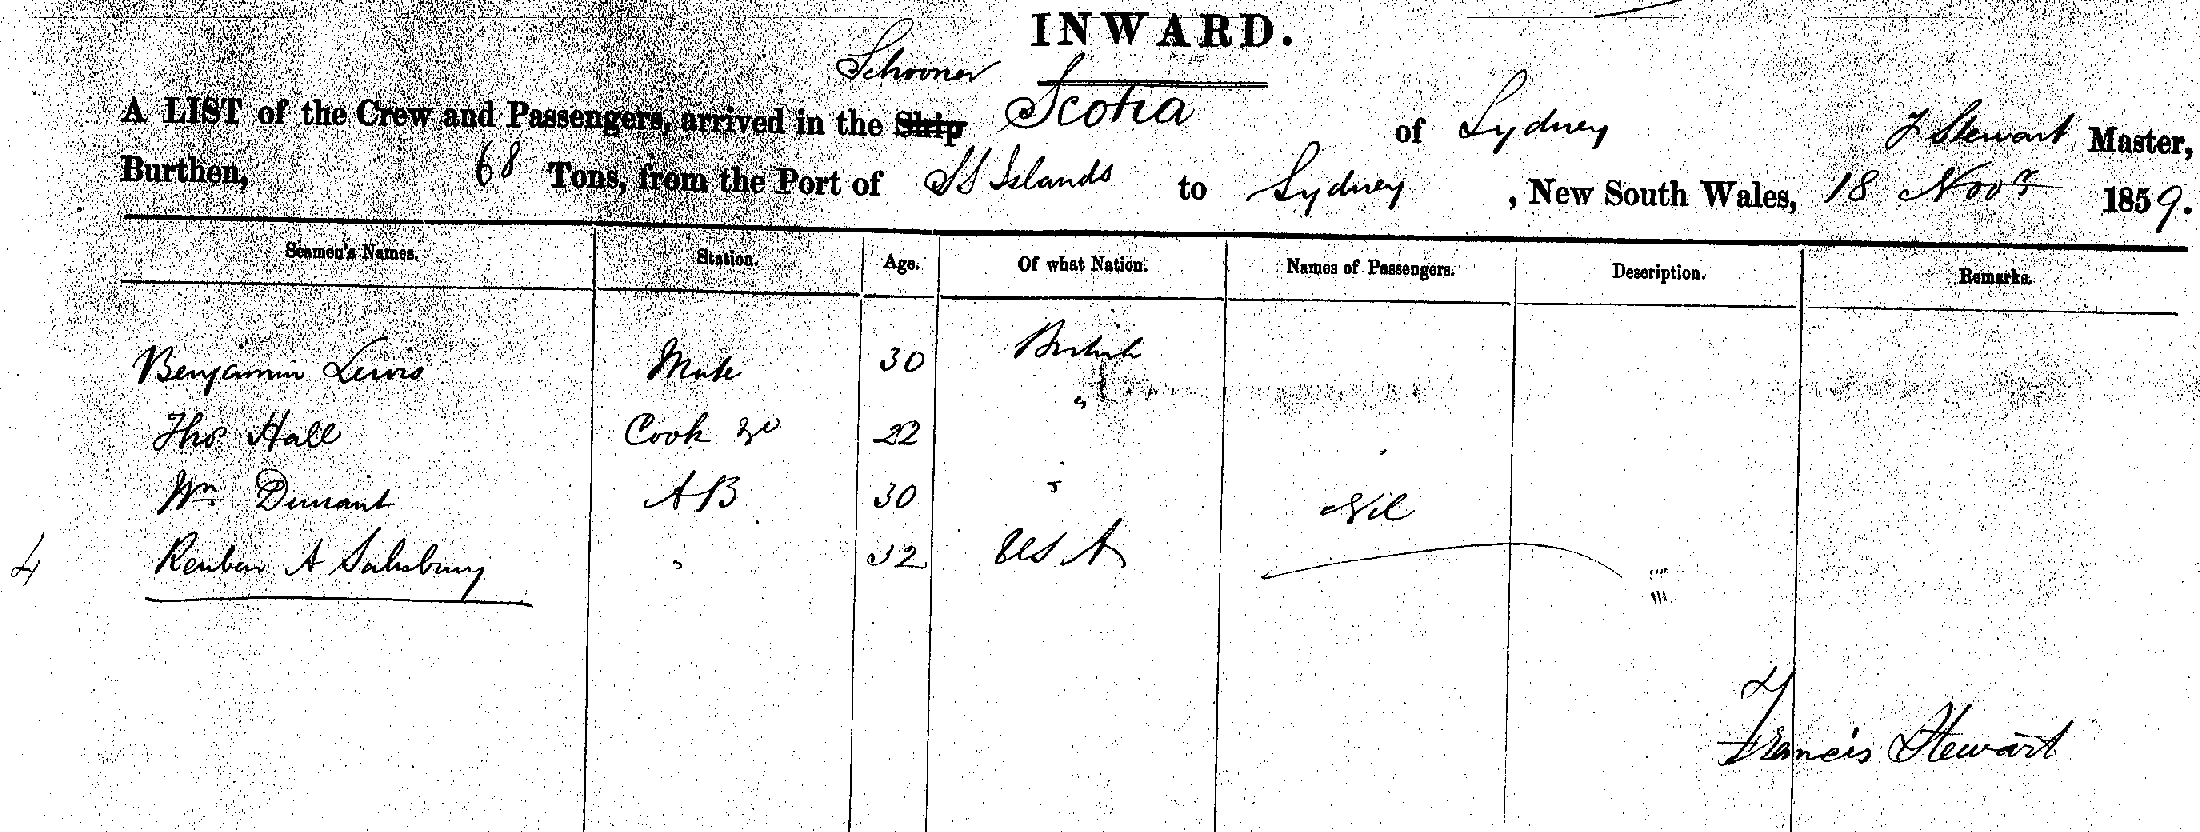 INWARD.
Schooner
A LIST of the Crew and Passengers, arrived in the Ship Scotia of Sydney F Stewart Master,
Burthen, 68 Tons, from the Port of SS Islands to Sydney , New South Wales, 18 Novr 1859.
Seamen's Names. Station. Age. Of what Nation. Names of Passengers. Description. Remarks.
Benjamin Lewis Mate 30 British
Thos Hall Cook &c 22 "
Wm Durrant AB 30 " Nil
4 Reuben A Salisbury " 32 US A
Francis Stewart